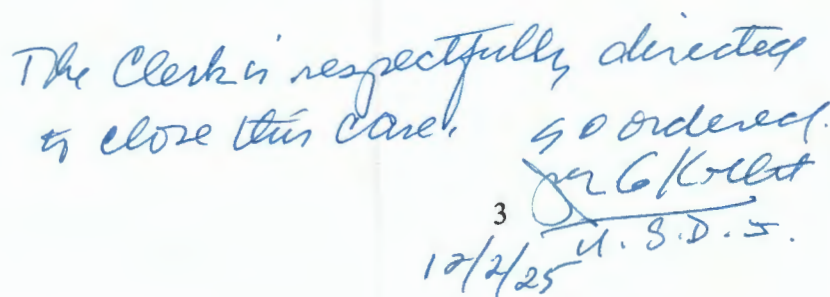 The Clerk is respectfully directed
to close this case. So ordered.
3
U.S.D.J.
12/2/25